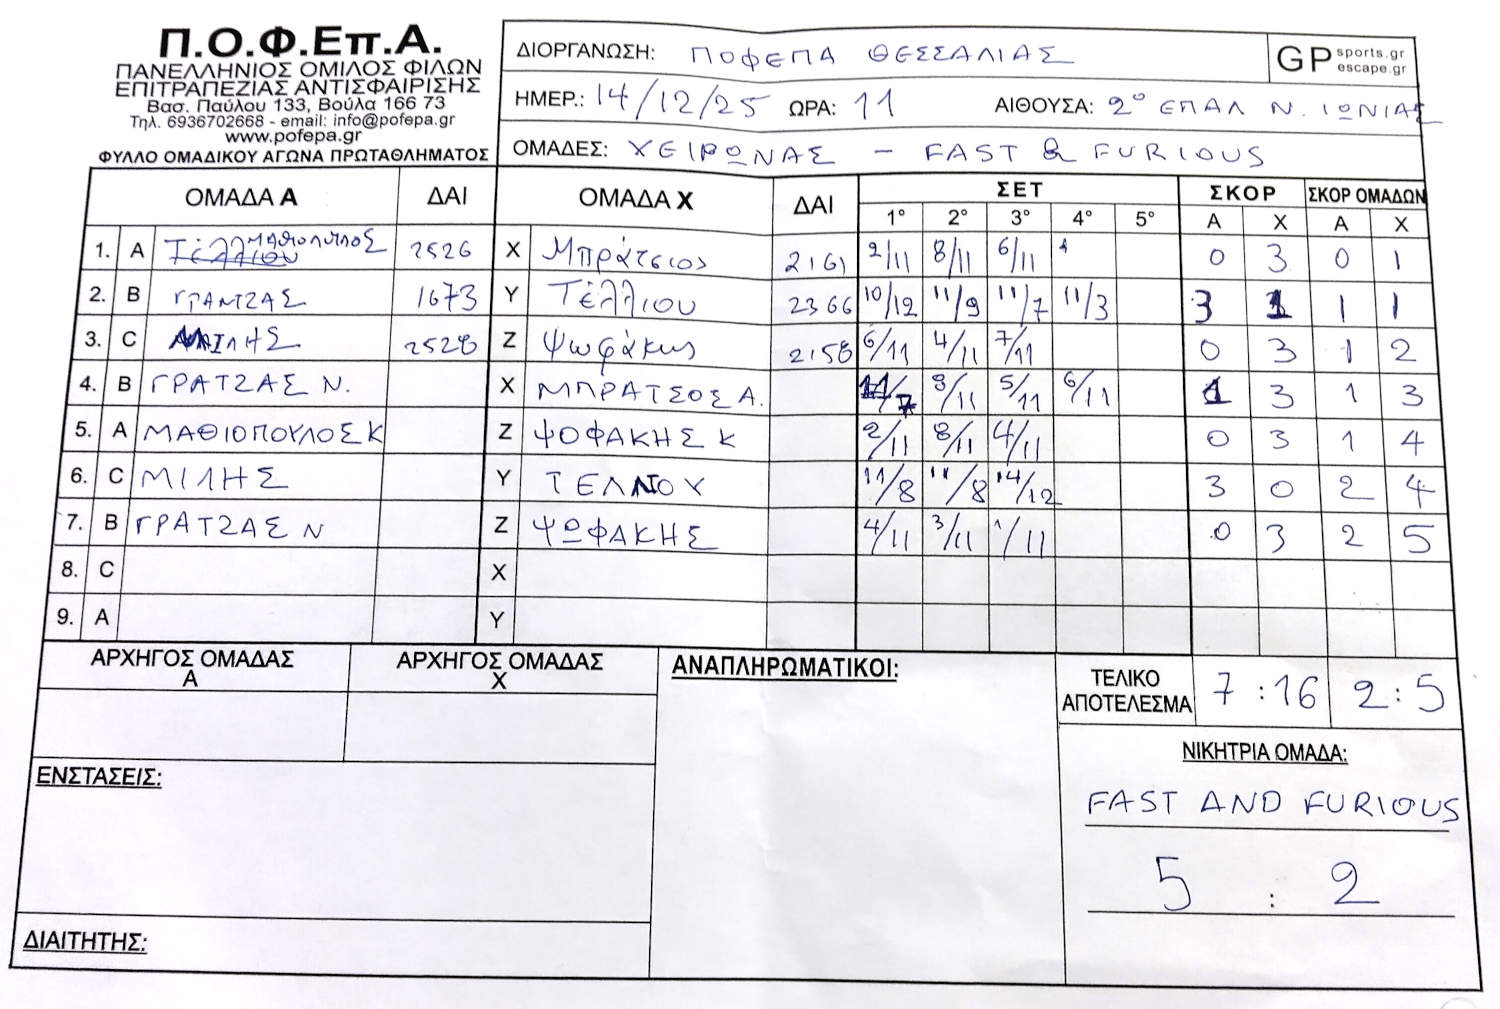 Π.Ο.Φ.Επ.Α.
ΠΑΝΕΛΛΗΝΙΟΣ ΟΜΙΛΟΣ ΦΙΛΩΝ
ΕΠΙΤΡΑΠΕΖΙΑΣ ΑΝΤΙΣΦΑΙΡΙΣΗΣ
Βασ. Παύλου 133, Βούλα 166 73
Τηλ. 6936702668 - email: info@pofepa.gr
www.pofepa.gr
ΦΥΛΛΟ ΟΜΑΔΙΚΟΥ ΑΓΩΝΑ ΠΡΩΤΑΘΛΗΜΑΤΟΣ
ΔΙΟΡΓΑΝΩΣΗ: ΠΟΦΕΠΑ ΘΕΣΣΑΛΙΑΣ
GP sports.gr
escape.gr
ΗΜΕΡ.: 14/12/25 ΩΡΑ: 11 ΑΙΘΟΥΣΑ: 2ο ΕΠΑΛ Ν. ΙΩΝΙΑΣ
ΟΜΑΔΕΣ: ΧΕΙΡΩΝΑΣ - FAST & FURIOUS
ΟΜΑΔΑ Α ΔΑΙ ΟΜΑΔΑ Χ ΔΑΙ ΣΕΤ ΣΚΟΡ ΣΚΟΡ ΟΜΑΔΩΝ
1° 2° 3° 4° 5° Α Χ Α Χ
1. Α Μαθιόπουλος 2526 Χ Μπράτσιος 2161 2/11 8/11 6/11 0 3 0 1
2. Β ΓΡΑΝΤΖΑΣ 1673 Υ Τέλλιου 2366 10/12 11/9 11/7 11/3 3 1 1 1
3. C ΜΙΛΗΣ 2528 Ζ Ψωφάκης 2158 6/11 4/11 7/11 0 3 1 2
4. Β ΓΡΑΤΖΑΣ Ν. Χ ΜΠΡΑΤΣΟΣ Α. 11/7 8/11 5/11 6/11 1 3 1 3
5. Α ΜΑΘΙΟΠΟΥΛΟΣ Κ Ζ ΨΟΦΑΚΗΣ Κ 2/11 8/11 4/11 0 3 1 4
6. C ΜΙΛΗΣ Υ ΤΕΛΛΙΟΥ 11/8 11/8 14/12 3 0 2 4
7. Β ΓΡΑΤΖΑΣ Ν Ζ ΨΩΦΑΚΗΣ 4/11 3/11 1/11 0 3 2 5
8. C Χ
9. Α Υ
ΑΡΧΗΓΟΣ ΟΜΑΔΑΣ Α
ΑΡΧΗΓΟΣ ΟΜΑΔΑΣ Χ
ΑΝΑΠΛΗΡΩΜΑΤΙΚΟΙ:
ΤΕΛΙΚΟ ΑΠΟΤΕΛΕΣΜΑ 7 : 16 2 : 5
ΝΙΚΗΤΡΙΑ ΟΜΑΔΑ:
FAST AND FURIOUS
5 : 2
ΕΝΣΤΑΣΕΙΣ:
ΔΙΑΙΤΗΤΗΣ: